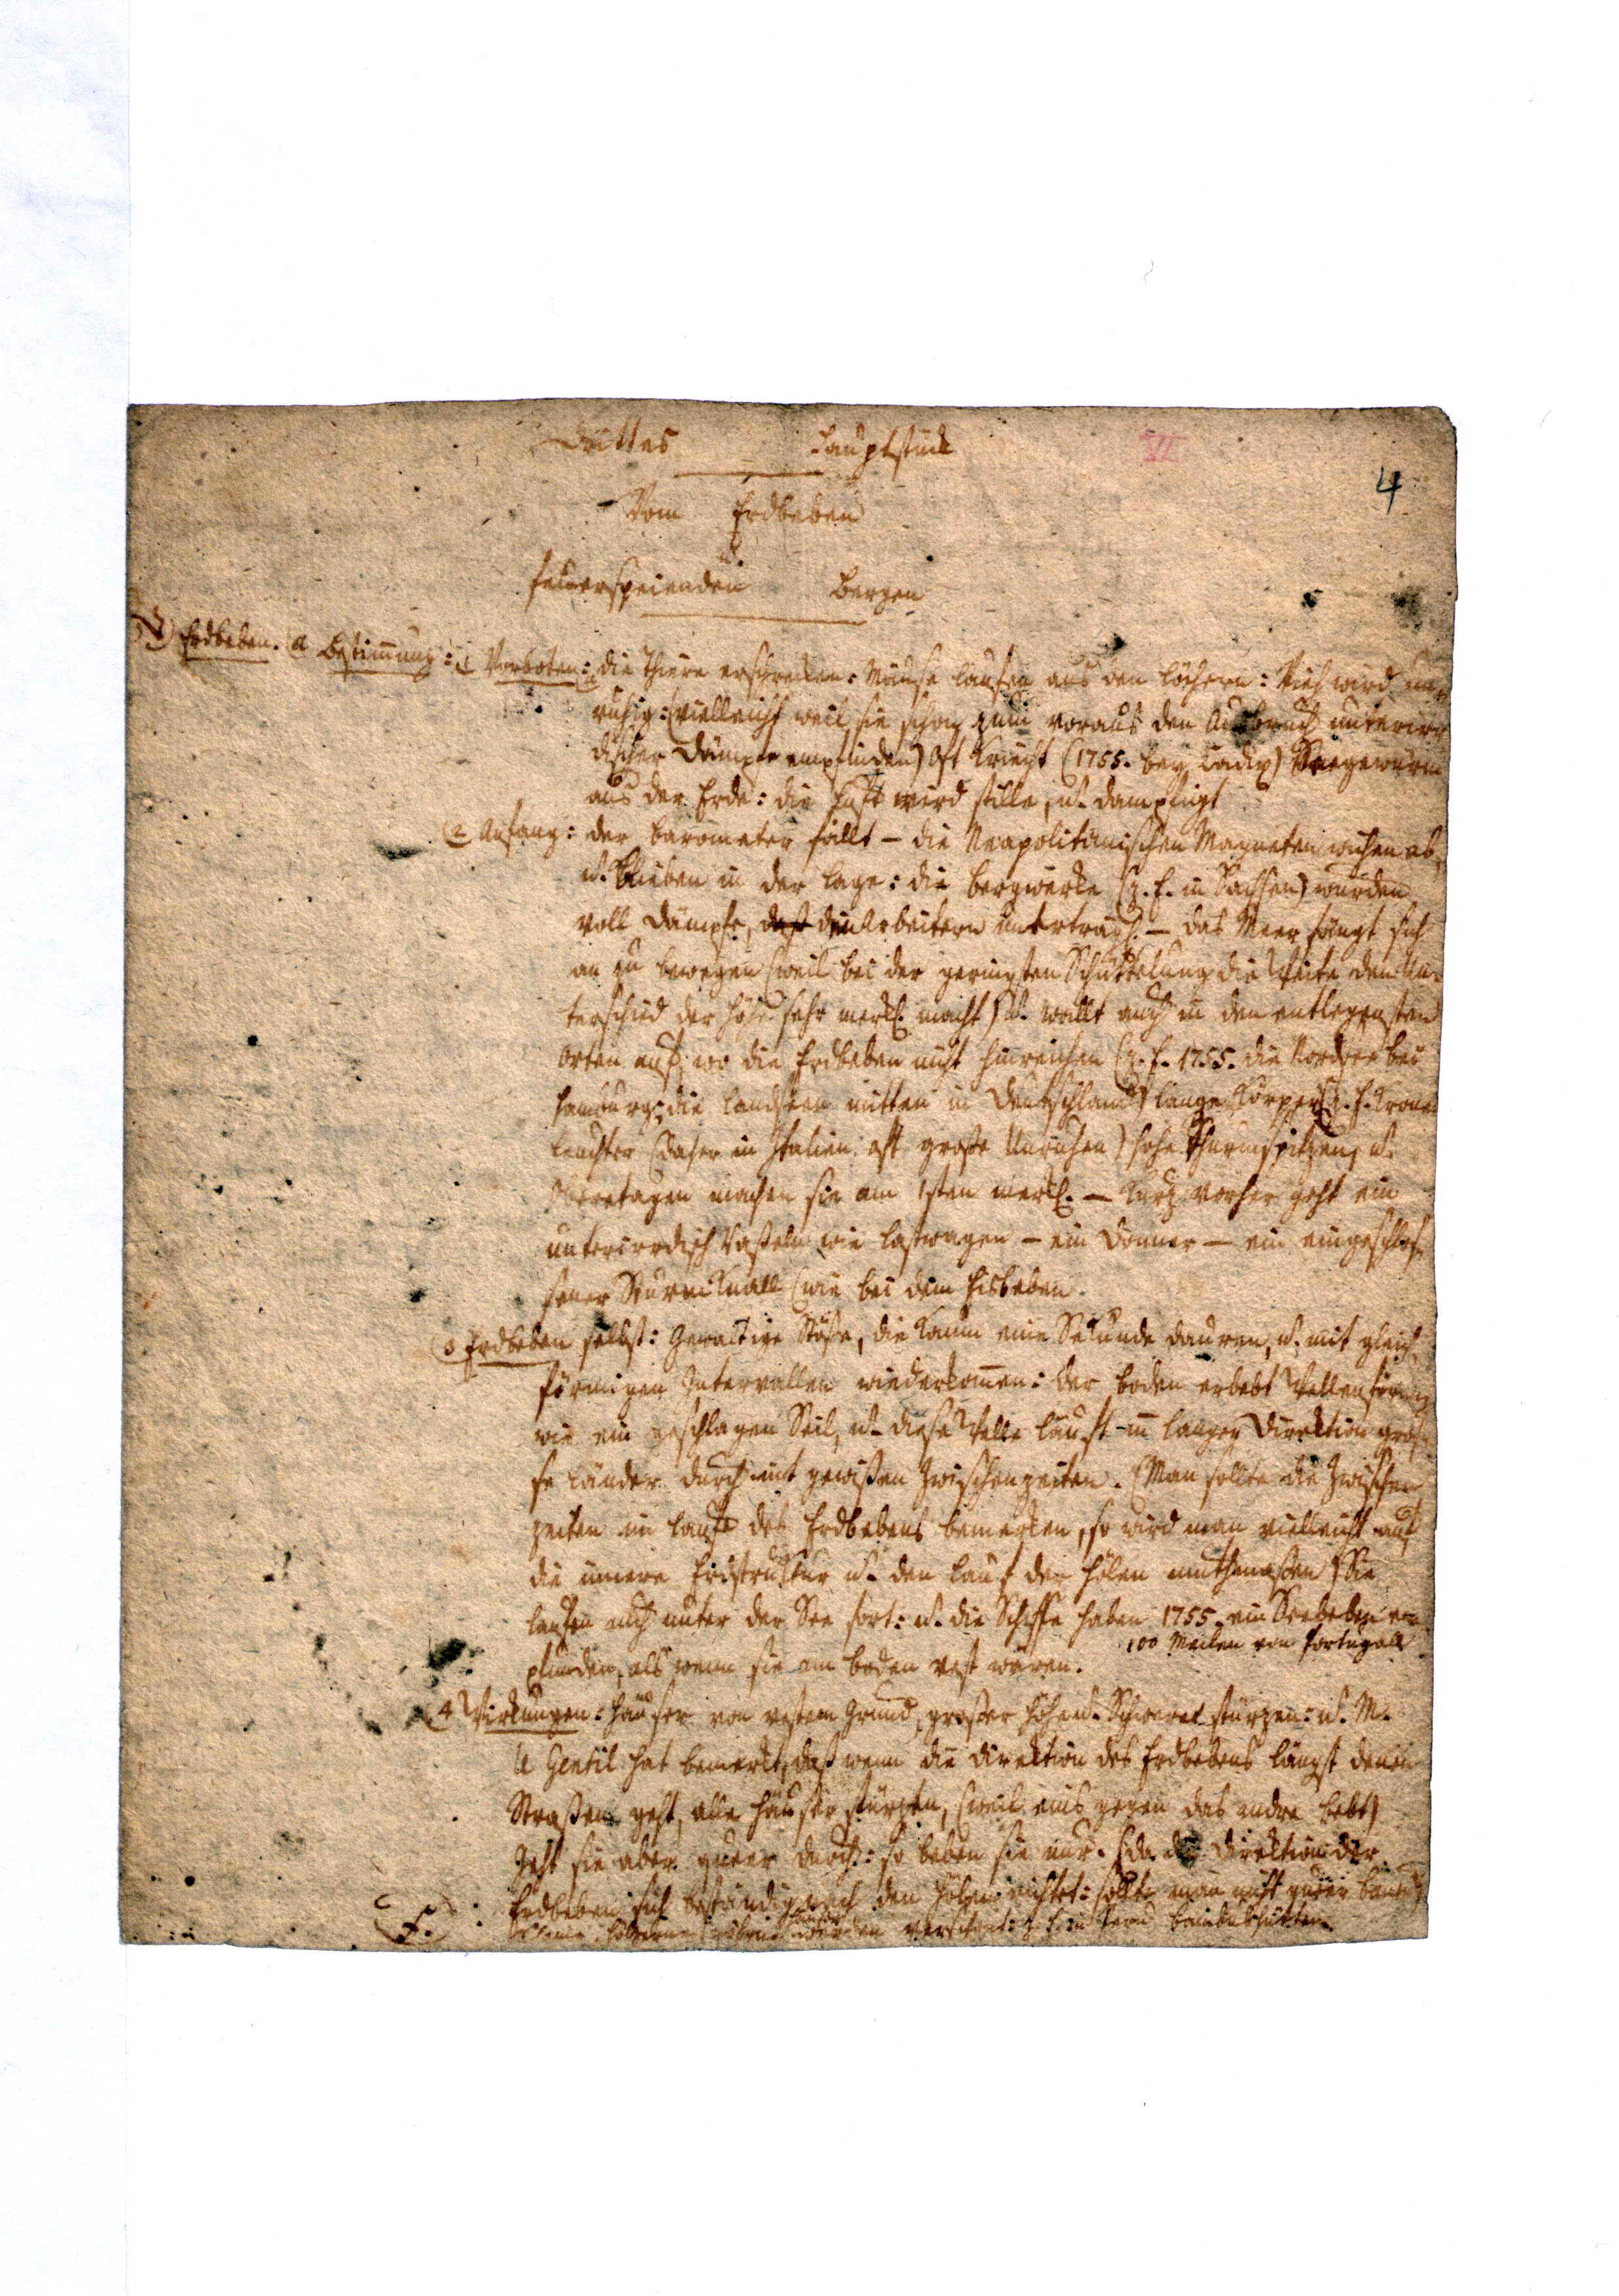 Drittes Hauptstück
VI
4
Vom Erdbeben
u.
feuerspeienden Bergen
1) Erdbeben. (a Bestimmung: (1 Vorboten: die Thiere erschrecken: Mäuse laufen aus den Löchern: Vieh wird un-
ruhig: (vielleicht weil sie schon zum voraus den Ausbruch unterirr-
discher Dämpfe empfinden) Oft kriecht (1755. bey Cadix) Gewürm
aus der Erde: die Luft wird stille, u. dampfigt
(2 Anfang: der Barometer fällt – die Neapolitanischen Magneten wichen ab,
u. blieben in der Lage: die Bergwerke (z. E. in Sachsen) wurden
voll Dämpfe, daß den Arbeitern unerträgl. – das Meer fängt sich
an zu bewegen (weil bei der geringsten Schüttelung die Weite den Un-
terschied der Höhe sehr merkl. macht) u. wallt auch in den entlegensten
Orten auf, wo die Erdbeben nicht hinreichen (z. E. 1755. die Nordsee bei
Hamburg; die Landseen mitten in Deutschland) lange Körper (z. E. Kron-
leuchter (daher in Italien oft große Unruhen) hohe Thurmspitzen, u.
Oberetagen machen sie am 1sten merkl. – Kurz vorher geht ein
unterirrdisch Raßeln wie Lastwagen – ein Donner – ein eingeschloß-
sener Sturm Knall (wie bei dem Eisbeben.
(3 Erdbeben selbst: Gewaltige Stöße, die kaum eine Sekunde dauren, u. mit gleich-
förmigen Intervallen wiederkommen: der Boden erbebt Wellenförmig
wie ein geschlagen Seil, u. diese Welle läuft in langer Direktion gros-
se Länder durch mit gewißen Zwischenzeiten. (Man sollte die Zwischen
zeiten im Laufe des Erdbebens bemerken, so wird man vielleicht auf
die innere Erdstruktur u. den Lauf der Hölen muthmaßen) Sie
laufen auch unter der See fort: u. die Schiffe haben 1755. ein Seebeben em-
100 Meilen von Portugall
pfunden, als wenn sie am Boden vest wären.
(4 Wirkungen: Häuser von vestem Grund, großer Höhe u. Schwere stürzen: u. M.
le Gentil hat bemerkt, daß wenn die Direktion des Erdbebens längst denen
Straßen geht, alle Häuser stürzen, (weil eins gegen das andre bebt)
Geht sie aber queer durch: so beben sie nur. (da die Direktion der
Erdbeben sich beständig nach den Hölen richtet: sollte man nicht queer bauen)
Häuser
F. kleine hölzerne werden verschont: z. E. in Peru Bambushütten.